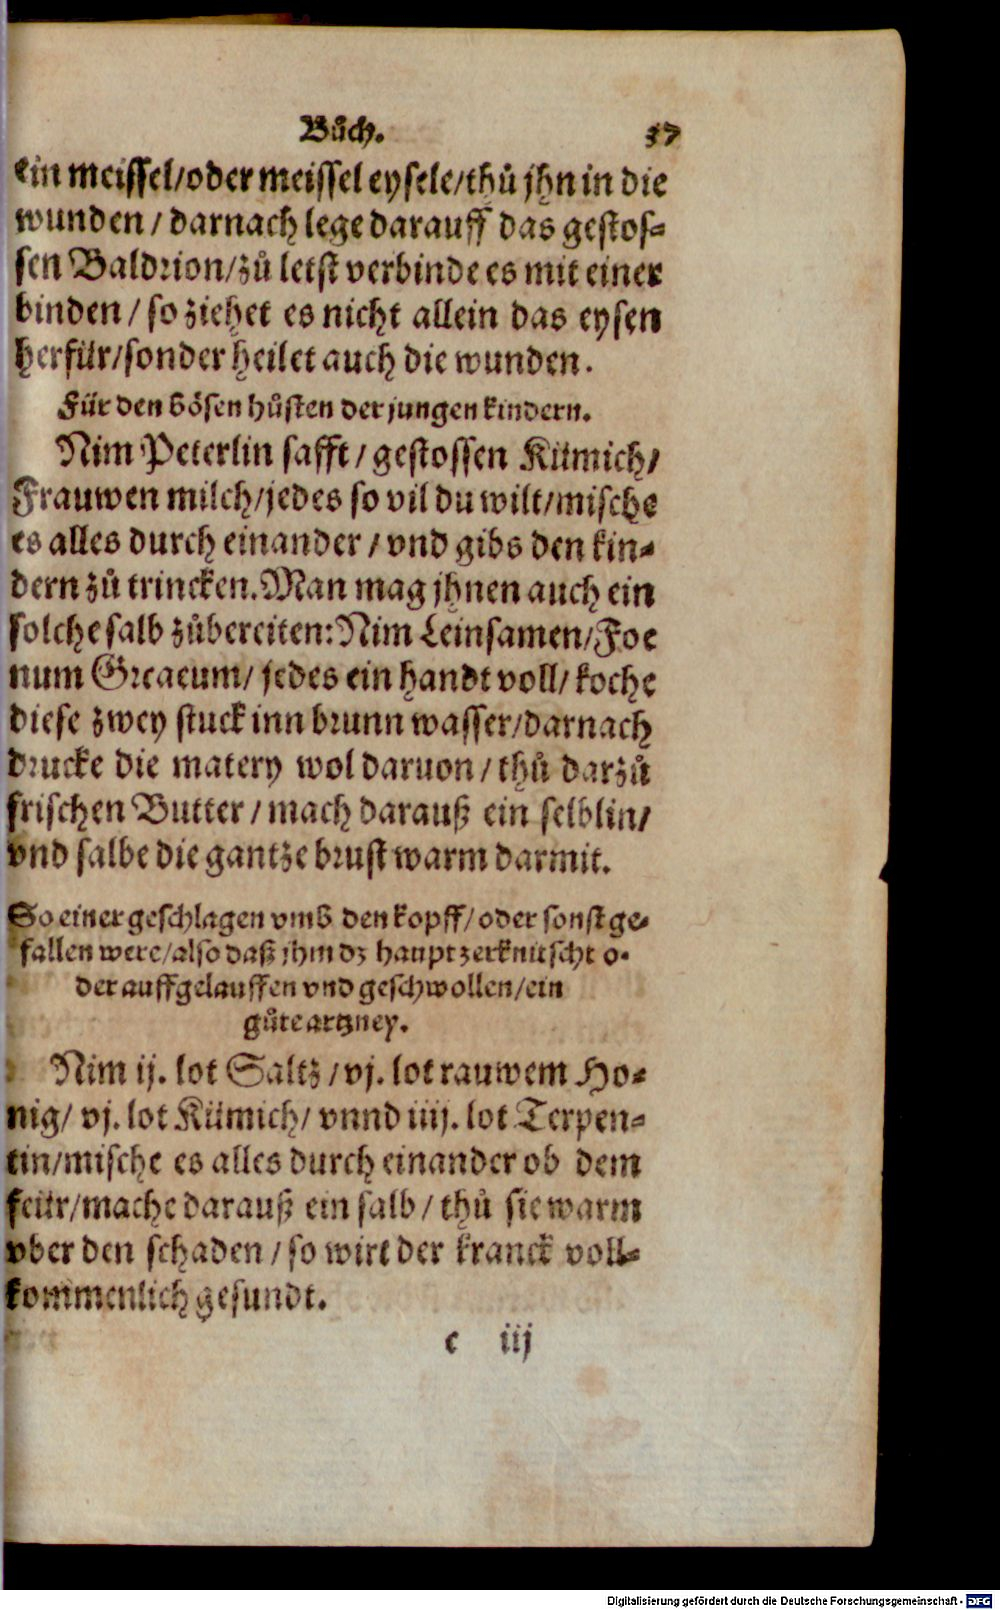 Bůch. 37
ein meissel/oder meissel eysele/thů jhn in die
wunden/ darnach lege darauff das gestos-
sen Baldrion/zů letst verbinde es mit einer
binden/ so ziehet es nicht allein das eysen
herfür/sonder heilet auch die wunden.
Für den bösen hůsten der jungen kindern.
Nim Peterlin safft/ gestossen Kümich/
Frauwen milch/jedes so vil du wilt/mische
es alles durch einander/ vnd gibs den kin-
dern zů trincken. Man mag jhnen auch ein
solche salb zůbereiten: Nim Leinsamen/Foe
num Grcaeum/ jedes ein handt voll/ koche
diese zwey stuck inn brunn wasser/darnach
drucke die matery wol daruon/ thů darzů
frischen Butter/ mach darauß ein selblin/
vnd salbe die gantze brust warm darmit.
So einer geschlagen vmb den kopff/ oder sonst ge-
fallen were/also daß jhm dz haupt zerknitscht o-
der auffgelauffen vnd geschwollen/ein
gůte artzney.
Nim ij. lot Saltz/ vj. lot rauwem Ho-
nig/ vj. lot Kümich/ vnnd iiij. lot Terpen-
tin/mische es alles durch einander ob dem
feür/mache darauß ein salb/ thů sie warm
vber den schaden/ so wirt der kranck voll-
kommenlich gesundt.
e iij
Digitalisierung gefördert durch die Deutsche Forschungsgemeinschaft - DFG